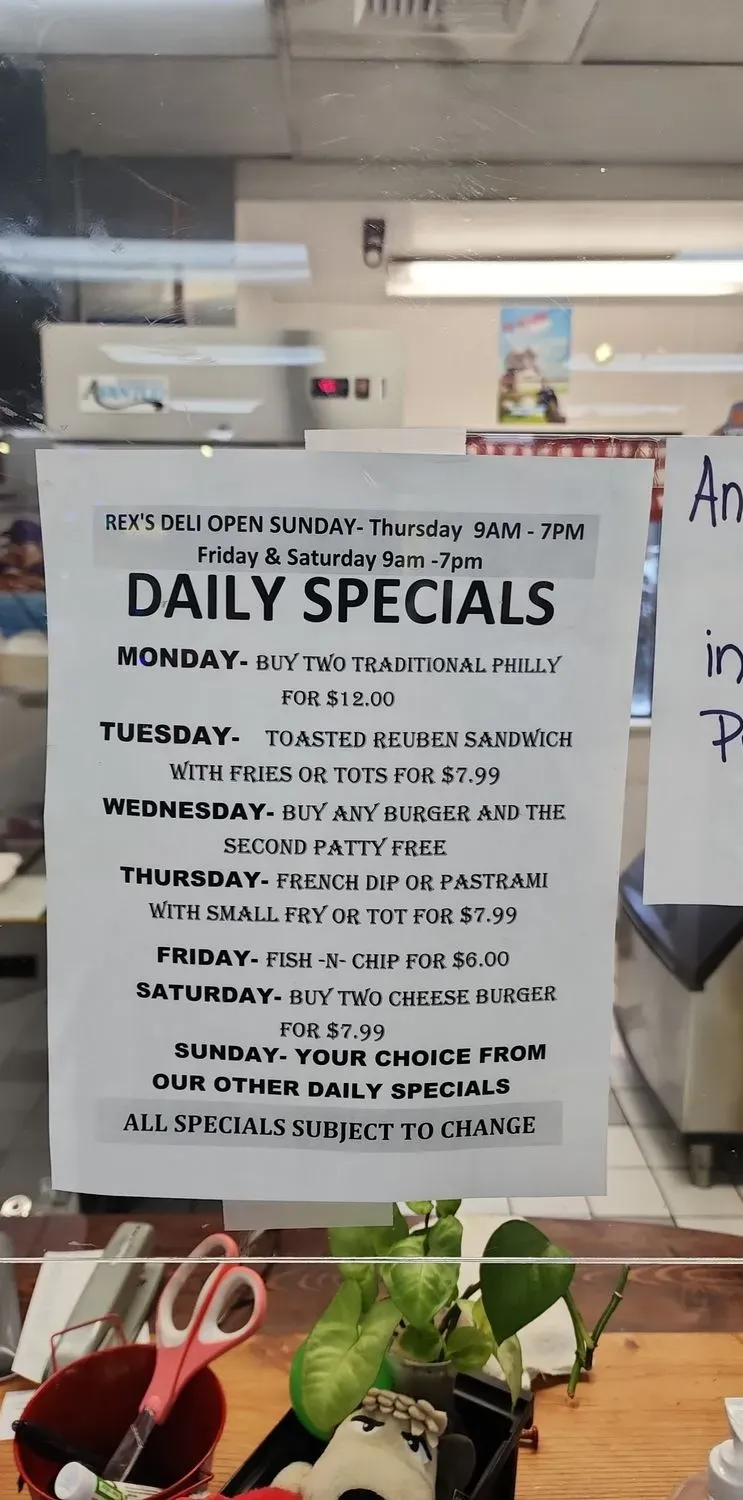 REX'S DELI OPEN SUNDAY- Thursday 9AM - 7PM
Friday & Saturday 9am -7pm
DAILY SPECIALS
MONDAY- BUY TWO TRADITIONAL PHILLY
FOR $12.00
TUESDAY- TOASTED REUBEN SANDWICH
WITH FRIES OR TOTS FOR $7.99
WEDNESDAY- BUY ANY BURGER AND THE
SECOND PATTY FREE
THURSDAY- FRENCH DIP OR PASTRAMI
WITH SMALL FRY OR TOT FOR $7.99
FRIDAY- FISH -N- CHIP FOR $6.00
SATURDAY- BUY TWO CHEESE BURGER
FOR $7.99
SUNDAY- YOUR CHOICE FROM
OUR OTHER DAILY SPECIALS
ALL SPECIALS SUBJECT TO CHANGE
An
in